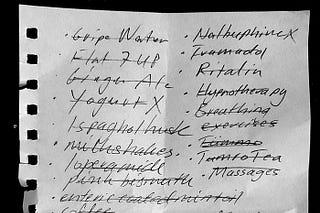 · Gripe Water
Flat 7 UP
Ginger Ale
· Yogurt X
Ispaghol husk
· milkshakes
· loperamide
· pink bismuth
· enteric coated mint oil
coffee
· Nalbuphine X
· Tramadol
· Ritalin
· Hypnotherapy
· Breathing
exercises
·
· Tea
· Massages